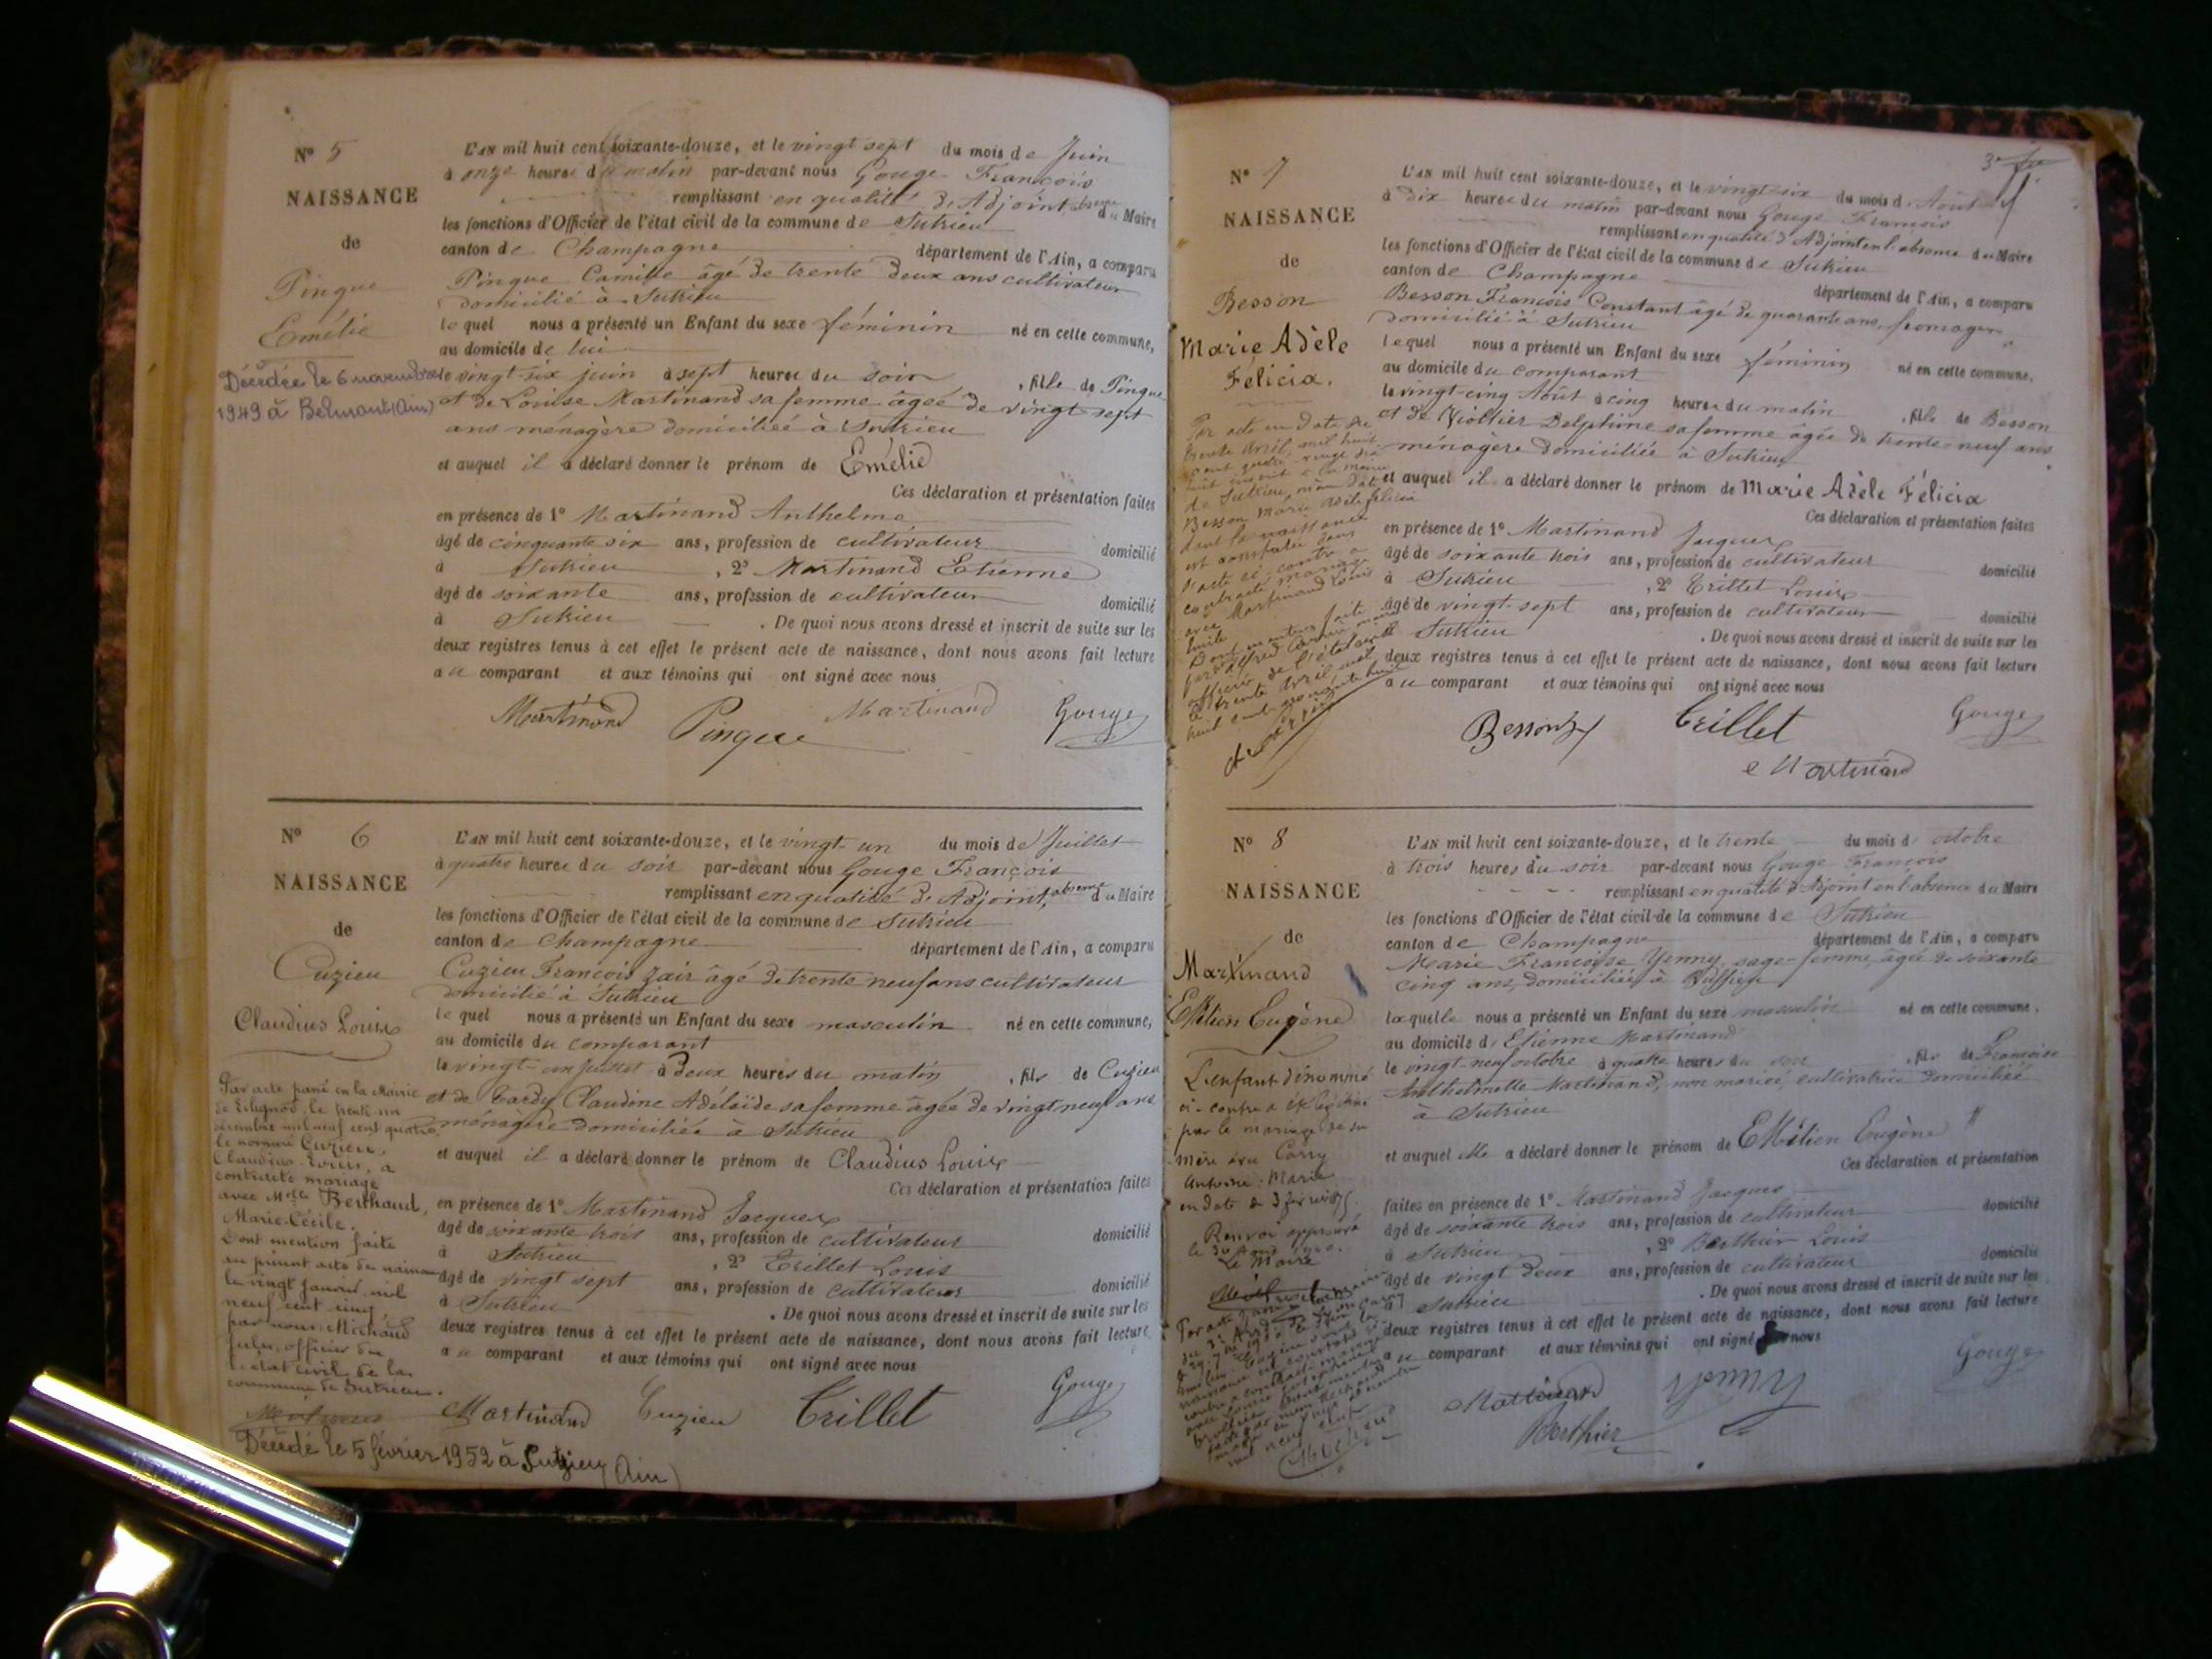 N° 5
NAISSANCE
de
Pingue
Emélie
Décédée le 6 novembre
1949 à Belmont (Ain)
L'AN mil huit cent soixante-douze, et le vingt sept du mois de Juin
à onze heures du matin par-devant nous Gouge François
remplissant en qualité d'Adjoint absence du Maire
les fonctions d'Officier de l'état civil de la commune de Sutrieu
canton de Champagne département de l'Ain, a comparu
Pingue Camille âgé de trente deux ans cultivateur
domicilié à Sutrieu
lequel nous a présenté un Enfant du sexe féminin né en cette commune,
au domicile de lui
le vingt-six juin à sept heures du soir, fille de Pingue
et de Louise Martinand sa femme âgée de vingt-sept
ans ménagère domiciliée à Sutrieu
et auquel il a déclaré donner le prénom de Emélie
Ces déclaration et présentation faites
en présence de 1° Martinand Anthelme
âgé de cinquante six ans, profession de cultivateur domicilié
à Sutrieu, 2° Martinand Etienne
âgé de soixante ans, profession de cultivateur domicilié
à Sutrieu. De quoi nous avons dressé et inscrit de suite sur les
deux registres tenus à cet effet le présent acte de naissance, dont nous avons fait lecture
au comparant et aux témoins qui ont signé avec nous
Martinand Pingue Martinand Gouge
N° 6
NAISSANCE
de
Cuzieu
Claudius Louis
Par acte passé en la Mairie
de le trente un
décembre mil neuf cent quatre
le nommé Cuzieu,
Claudius Louis, a
contracté mariage
avec Melle Berthaud,
Marie-Cécile.
Dont mention faite
au présent acte de naissance
le vingt janvier mil
neuf cent cinq,
par nous, Michaud
Jules, officier de
l'état civil de la
commune de Sutrieu.
Décédé le 5 février 1952 à Sutrieu (Ain)
L'AN mil huit cent soixante-douze, et le vingt-un du mois de Juillet
à quatre heures du soir par-devant nous Gouge François
remplissant en qualité d'Adjoint, absence du Maire
les fonctions d'Officier de l'état civil de la commune de Sutrieu
canton de Champagne département de l'Ain, a comparu
Cuzieu François Zair âgé de trente neuf ans cultivateur
domicilié à Sutrieu
lequel nous a présenté un Enfant du sexe masculin né en cette commune,
au domicile du comparant
le vingt-un juillet à deux heures du matin, fils de Cuzieu
et de Tardy Claudine Adélaïde sa femme âgée de vingt neuf ans
ménagère domiciliée à Sutrieu
et auquel il a déclaré donner le prénom de Claudius Louis
Ces déclaration et présentation faites
en présence de 1° Martinand Jacques
âgé de soixante trois ans, profession de cultivateur domicilié
à Sutrieu, 2° Trillet Louis
âgé de vingt sept ans, profession de cultivateur domicilié
à Sutrieu. De quoi nous avons dressé et inscrit de suite sur les
deux registres tenus à cet effet le présent acte de naissance, dont nous avons fait lecture
au comparant et aux témoins qui ont signé avec nous
Martinand Cuzieu Trillet Gouge
3e
N° 7
NAISSANCE
de
Besson
Marie Adèle
Félicia.
Par acte en date du
trente avril, mil huit
cent quatre vingt dix
huit inscrit à la mairie
de Sutrieu,
Besson Marie Adèle Félicia
dont la naissance
est constatée dans
l'acte ci-contre a
contracté mariage
avec Martinand Louis
Dont mention faite
par
officier de l'état civil
le trente avril mil
huit cent quatre vingt dix huit
L'AN mil huit cent soixante-douze, et le vingt-six du mois d'Août
à dix heures du matin par-devant nous Gouge François
remplissant en qualité d'Adjoint en l'absence du Maire
les fonctions d'Officier de l'état civil de la commune de Sutrieu
canton de Champagne département de l'Ain, a comparu
Besson François Constant âgé de quarante ans, fromager
domicilié à Sutrieu
lequel nous a présenté un Enfant du sexe féminin né en cette commune,
au domicile du comparant
le vingt-cinq Août à cinq heures du matin, fille de Besson
et de Viollier Delphine sa femme âgée de trente-neuf ans
ménagère domiciliée à Sutrieu
et auquel il a déclaré donner le prénom de Marie Adèle Félicia
Ces déclaration et présentation faites
en présence de 1° Martinand Jacques
âgé de soixante trois ans, profession de cultivateur domicilié
à Sutrieu, 2° Trillet Louis
âgé de vingt-sept ans, profession de cultivateur domicilié
à Sutrieu. De quoi nous avons dressé et inscrit de suite sur les
deux registres tenus à cet effet le présent acte de naissance, dont nous avons fait lecture
au comparant et aux témoins qui ont signé avec nous
Besson Trillet Gouge
Martinand
N° 8
NAISSANCE
de
Martinand
Emilien Eugène
L'enfant dénommé
ci-contre a été légitimé
par le mariage de sa
mère avec Carry
Antoine Marie
en date du 3 février
Renvoi approuvé
Le Maire
L'AN mil huit cent soixante-douze, et le trente du mois d'octobre
à trois heures du soir par-devant nous Gouge François
remplissant en qualité d'Adjoint en l'absence du Maire
les fonctions d'Officier de l'état civil de la commune de Sutrieu
canton de Champagne département de l'Ain, a comparu
Marie Françoise Yenny, sage-femme, âgée de soixante
cinq ans, domiciliée à Ruffieu
laquelle nous a présenté un Enfant du sexe masculin né en cette commune.
au domicile d'Etienne Martinand
le vingt-neuf octobre à quatre heures du soir, fils de Françoise
Anthelmette Martinand, non mariée, cultivatrice domiciliée
à Sutrieu
et auquel elle a déclaré donner le prénom de Emilien Eugène
Ces déclaration et présentation
faites en présence de 1° Martinand Jacques
âgé de soixante trois ans, profession de cultivateur domicilié
à Sutrieu, 2° Berthier Louis
âgé de vingt deux ans, profession de cultivateur domicilié
à Sutrieu. De quoi nous avons dressé et inscrit de suite sur les
deux registres tenus à cet effet le présent acte de naissance, dont nous avons fait lecture
au comparant et aux témoins qui ont signé nous
Martinand Yenny Gouge
Berthier